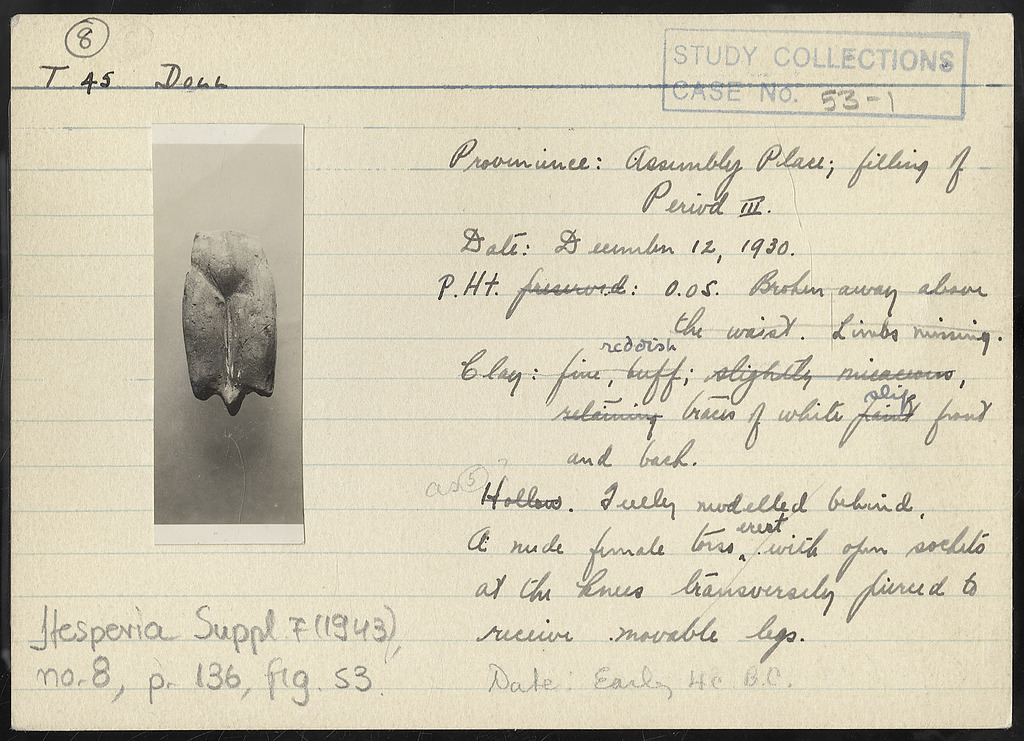 8
T 45 Doll
STUDY COLLECTIONS
CASE No. 53-1
Provenience: Assembly Place; filling of
Period III.
Date: December 12, 1930.
P.Ht. preserved: 0.05. Broken away above
the waist. Limbs missing.
reddish
Clay: fine, buff; slightly micaceous,
slip
retaining traces of white paint front
and back.
as 5?
Hollow. Fully modelled behind.
erect
A nude female torso, with open sockets
at the knees transversely pierced to
receive movable legs.
Date: Early 4c B.C.
Hesperia Suppl 7 (1943),
no. 8, p. 136, fig. 53.